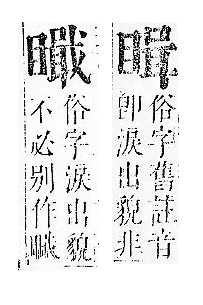 俗字舊註音
即淚出貌非
俗字淚出貌
不必別作